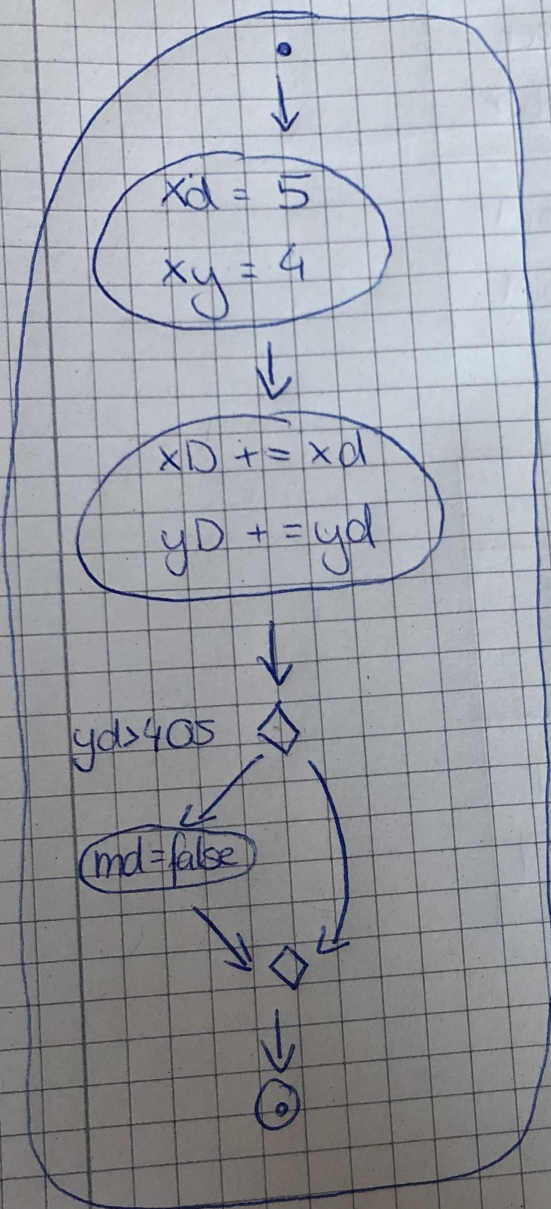 xd = 5
xy = 4
xD += xd
yD += yd
yd>405
md=false